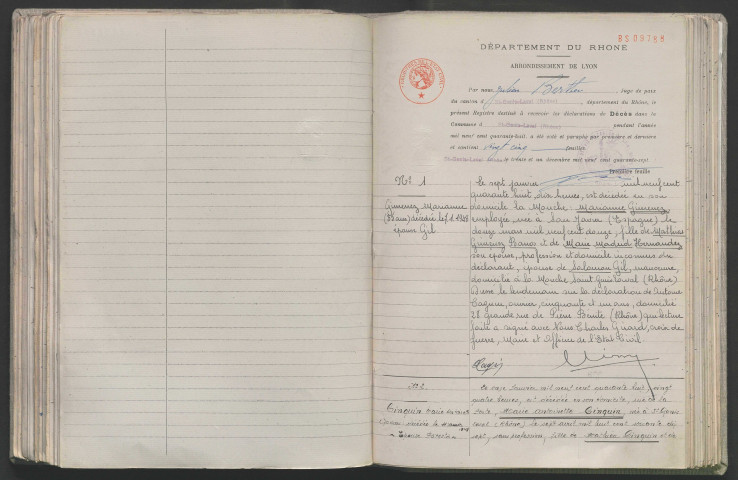 BS09788
DÉPARTEMENT DU RHONE
ARRONDISSEMENT DE LYON
Par nous, Berthier, Juge de paix
du canton de St-Genis-Laval (Rhône), département du Rhône, le
présent Registre destiné à recevoir les déclarations de Décès dans la
Commune d pendant l'année
mil neuf cent quarante-huit, a été coté et paraphé par première et dernière
et contient vingt cinq feuilles
St-Genis-Laval le treize et un décembre mil neuf cent quarante-sept
Première feuille
N° 1
Gimenez Marianne
(36 ans) décédée le 7.1.1948
épouse Gil
Le sept janvier mil neuf cent
quarante huit, dix heures, est décédée en son
domicile la Mouche Marianne Gimenez
employée née à San Xavier (Espagne) le
douze mars mil neuf cent douze, fille de Mathias
Gimenez Ramos et de Marie Madrid Hernandez
son épouse, profession et domicile inconnus du
déclarant, épouse de Salomon Gil, manœuvre,
domicilié à la Mouche Saint Genis Laval (Rhône)
Dressé le lendemain sur la déclaration de Antoine
ouvrier, cinquante et un ans, domicilié
28 grande rue de Pierre Bénite (Rhône) qui lecture
faite a signé avec Nous Charles Guard, croix de
guerre, Maire et Officier de l'Etat Civil
N° 2
Cinquin Marie Antoinette
décédée le
Le onze janvier mil neuf cent quarante huit, vingt
quatre heures, est décédée en son domicile, rue de la
Marie Antoinette Cinquin née à St Genis
Laval (Rhône) le sept avril mil huit cent soixante dix
sept, sans profession, fille de Mathieu Cinquin et de